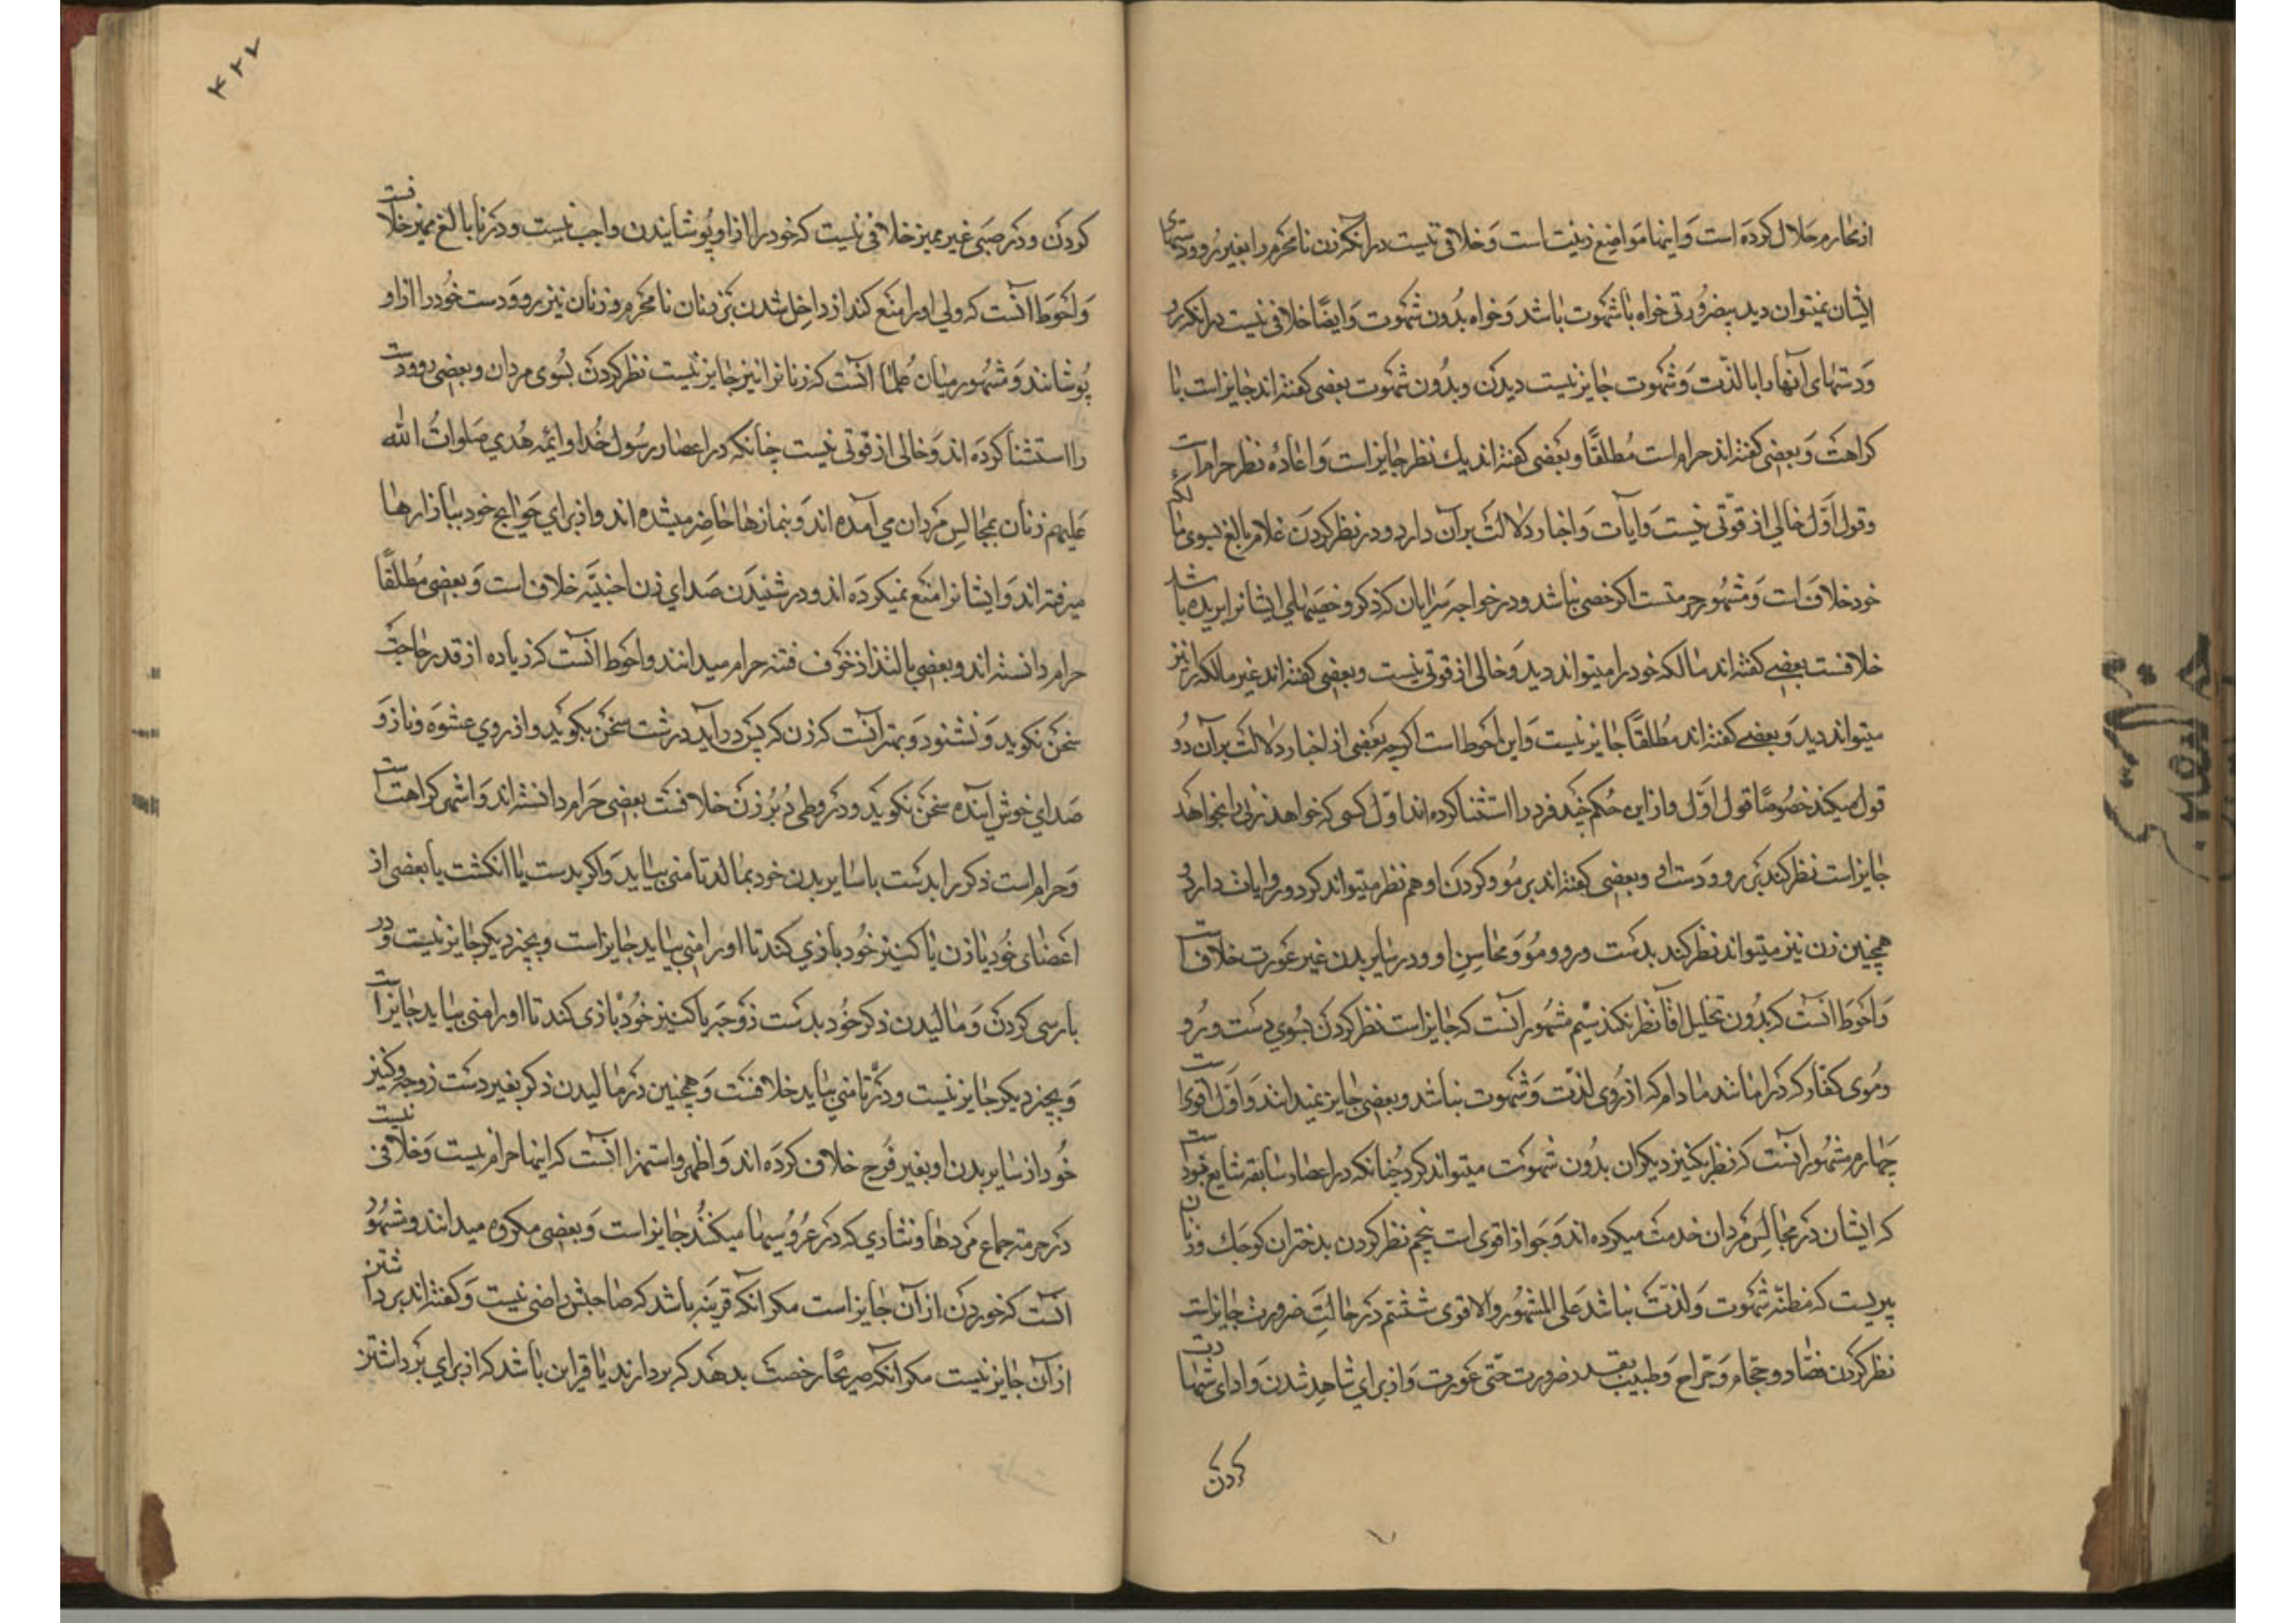 از محارم حلال کرده است و اینها مواضع زینت است و خلافی نیست در آنکه زن نامحرم را بغیر رو و دستهای
ایشان نمیتوان دید بیضرورتی خواه باشهوت باشد و خواه بدون شهوت و ایضا خلافی نیست در آنکه رو
و دستهای آنها را با لذت و شهوت جایز نیست دیدن و بدون شهوت بعضی گفته اند جایز است با
کراهت و بعضی گفته اند حرام است مطلقا و بعضی گفته اند یك نظر جایز است و اعادهٔ نظر حرام است
و قول اول خالی از قوتی نیست و آیات و اخبار دلالت بر آن دارد و در نظر کردن غلام بالغ بسوی مالکهٔ
خود خلاف است و مشهور حرمتست اگر خصی نباشد و در خواجه سرایان که ذکر و خصیهای ایشانرا بریده باشد
خلافست بعضی گفته اند مالکه خود را میتواند دید و خالی از قوتی نیست و بعضی گفته اند غیر مالکه را نیز
میتواند دید و بعضی گفته اند مطلقا جایز نیست و این احوط است اگرچه بعضی از اخبار دلالت بر آن دو
قول میکند خصوصا قول اول و از این حکم چند فرد را استثنا کرده اند اول کسی که خواهد زنی را بخواهد
جایز است نظر کند بر رو و دست او و بعضی گفته اند بر مو و گردن او هم نظر میتواند کرد و روایات دارد و
همچنین زن نیز میتواند نظر کند بدست و رو و مو و محاسن او و در سایر بدن غیر عورت خلافست
و احوط آنست که بدون تحلیل آقا نظر نکند سیم مشهور آنست که جایز است نظر کردن بسوی دست و رو
و موی کفار که در اما شد مادام که از روی لذت و شهوت نباشد و بعضی جایز نمیدانند و اول اقوی است
چهارم مشهور آنست که نظر بکنیز دیگران بدون شهوت میتواند کرد چنانکه در اعصار سابقه شایع بوده است
که ایشان در مجالس مردان خدمت میکرده اند و جواز اقوی است پنجم نظر کردن بدختران کوچك و زنان
پیریست که مظنه شهوت و لذت نباشد علی المشهور و الاقوی ششم در حالت ضرورت جایز است
نظر کردن فصاد و حجام و جراح و طبیب بقدر ضرورت حتی عورت و از برای شاهد شدن و ادای شهادت
کردن
۴۲۲
کردن و در صبی غیر ممیز خلافی نیست که خود را از او پوشانیدن واجب نیست و در نابالغ ممیز خلافست
و احوط آنست که ولی او را منع کند از داخل شدن بر زنان نامحرم و زنان نیز رو و دست خود را از او
پوشانند و مشهور میان علما آنست که زنانرا نیز جایز نیست نظر کردن بسوی مردان و بعضی رو و دست
را استثنا کرده اند و خالی از قوتی نیست چنانکه در اعصار رسول خدا و ایمه هدی صلوات الله
علیهم زنان بمجالس مردان می آمده اند و بنمازها حاضر میشده اند و از برای حوایج خود ببازارها
میرفته اند و ایشانرا منع نمیکرده اند و در شنیدن صدای زن اجنبیه خلاف است و بعضی مطلقا
حرام دانسته اند و بعضی با لتذاذ خوف فتنه حرام میدانند و احوط آنست که زیاده از قدر حاجت
سخن نگوید و نشنود و بهتر آنست که زن که پس در آید درشت سخن بگوید و از روی عشوه و ناز و
صدای خوش آینده سخن نگوید و در وطی دبر زن خلافست بعضی حرام دانسته اند و اشهر کراهتست
و حرام است ذکر را بدست با سایر بدن خود بمالد تا منی بیاید و اگر بدست یا انگشت یا بعضی از
اعضای خود با زن یا کنیز خود بازی کند تا او را منی بیاید جایز است و بچیز دیگر جایز نیست و در
بارسی کردن و مالیدن ذکر خود بدست زوجه یا کنیز خود بازی کند تا او را منی بیاید جایز است
و بچیز دیگر جایز نیست و در تا منی بیاید خلافست و همچنین در مالیدن ذکر بغیر دست زوجه و کنیز
خود از سایر بدن او بغیر فرج خلاف کرده اند و اظهر و اشهر آنست که اینها حرام نیست و خلافی نیست
در حرمت جماع مردها و نثاری که در عروسیها میکنند جایز است و بعضی مکروه میدانند و مشهور
آنست که خوردن از آن جایز است مگر آنکه قرینه باشد که صاحبش راضی نیست و گفته اند برداشتن
از آن جایز نیست مگر آنکه صریحا رخصت بدهد که بردارند یا قراین باشد که از برای برداشتن